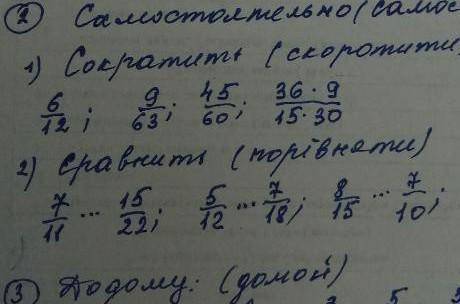 ② Самостоятельно (самос
1) Сократить (скоротити
6/12; 9/63; 45/60; 36·9/15·30
2) Сравнить (порівняти)
7/11 ... 15/22; 5/12 ... 7/18; 8/15 ... 7/10;
③ Додому: (домой)